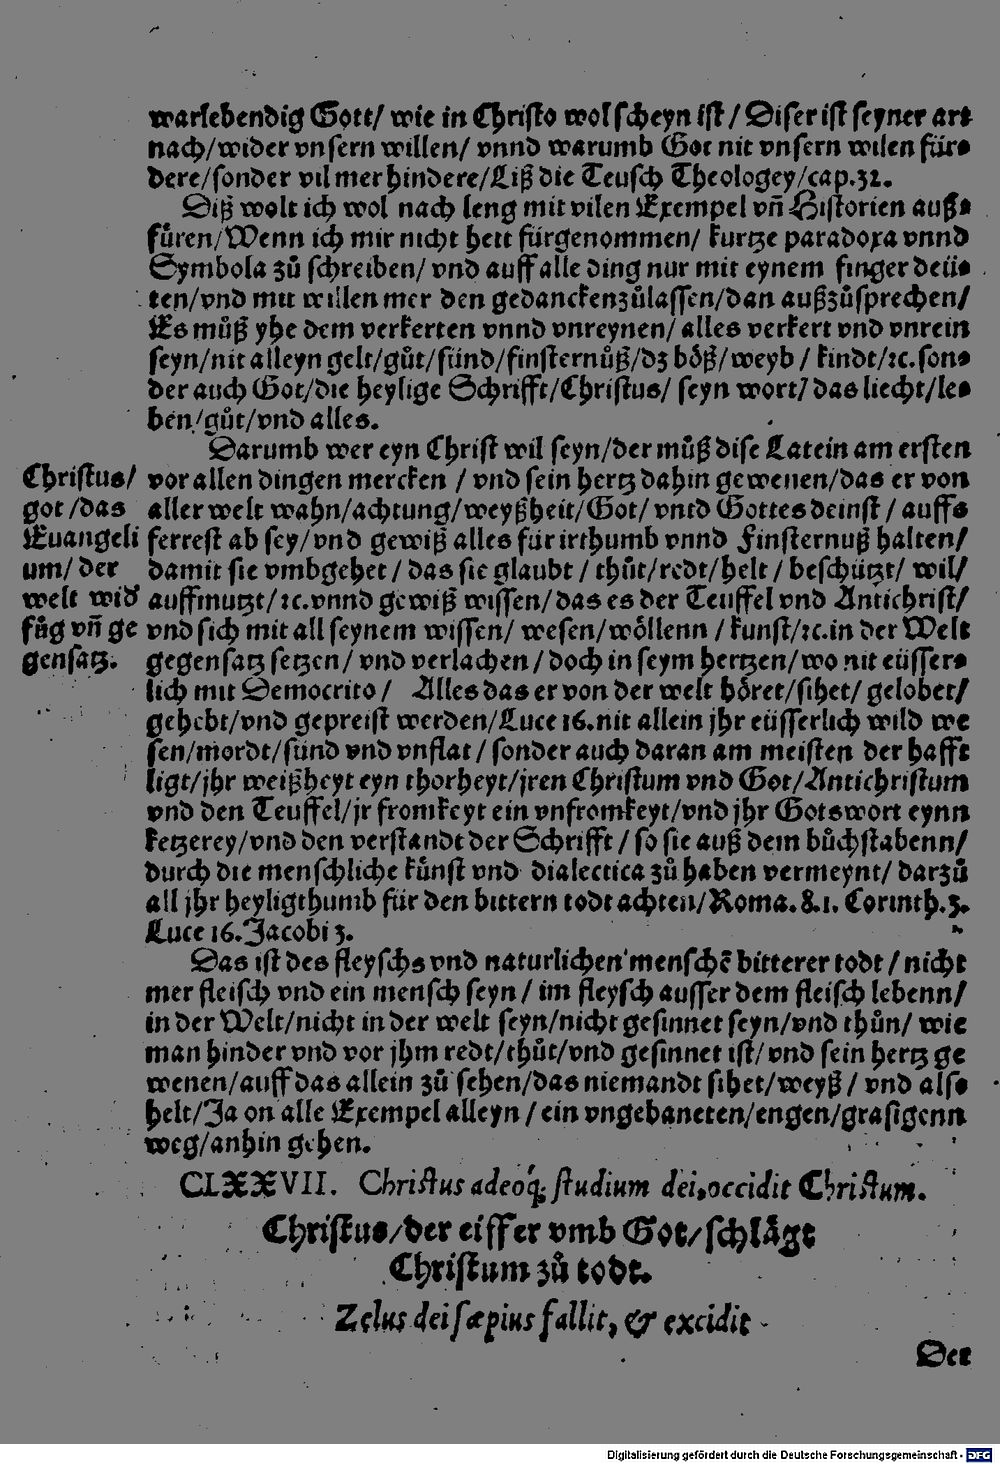 warlebendig Gott/ wie in Christo wol scheyn ist / Diser ist seyner art
nach/wider vnsern willen/ vnnd warumb Got nit vnsern wilen für⸗
dere/sonder vil mer hindere/Liß die Teusch Theologey/cap.32.
Diß wolt ich wol nach leng mit vilen Exempel vñ Historien auß⸗
füren/Wenn ich mir nicht hett fürgenommen/ kurtze paradoxa vnnd
Symbola zů schreiben/ vnd auff alle ding nur mit eynem finger deü⸗
ten/vnd mit willen mer den gedancken zůlassen/dan außzůsprechen/
Es můß yhe dem verkerten vnnd vnreynen/ alles verkert vnd vnrein
seyn/nit alleyn gelt/gůt/sünd/finsternůß/dz böß/weyb / kindt/ꝛc.son⸗
der auch Got/die heylige Schrifft/Christus/ seyn wort/ das liecht/le⸗
ben/gůt/vnd alles.
Darumb wer eyn Christ wil seyn/der můß dise Latein am ersten
vor allen dingen mercken / vnd sein hertz dahin gewenen/das er von
aller welt wahn/achtung/weyßheit/Got/ vntd Gottes deinst / auffs
ferrest ab sey/vnd gewiß alles für irthumb vnnd Finsternuß halten/
damit sie vmbgehet / das sie glaubt / thůt/redt/helt / beschützt/ wil/
auffmutzt/ꝛc.vnnd gewiß wissen/das es der Teuffel vnd Antichrist/
vnd sich mit all seynem wissen/ wesen/wöllenn / kunst/ꝛc.in der Welt
gegensatz setzen/ vnd verlachen / doch in seym hertzen/wo nit eüsser⸗
lich mit Democrito / Alles das er von der welt höret/sihet/ gelobet/
gehebt/vnd gepreist werden/Luce 16.nit allein jhr eüsserlich wild we
sen/mordt/sünd vnd vnflat / sonder auch daran am meisten der hafft
ligt/jhr weißheyt eyn thorheyt/jren Christum vnd Got/Antichristum
vnd den Teuffel/jr fromkeyt ein vnfromkeyt/vnd jhr Gotswort eynn
ketzerey/vnd den verstandt der Schrifft / so sie auß dem bůchstabenn/
durch die menschliche künst vnd dialectica zů haben vermeynt/ darzů
all jhr heyligthumb für den bittern todt achten/Roma.8.1. Corinth.3.
Luce 16.Jacobi 3.
Das ist des fleyschs vnd naturlichen menschē bitterer todt / nicht
mer fleisch vnd ein mensch seyn / im fleysch ausser dem fleisch lebenn/
in der Welt/nicht in der welt seyn/nicht gesinnet seyn/vnd thůn/ wie
man hinder vnd vor jhm redt/thůt/vnd gesinnet ist/ vnd sein hertz ge
wenen/auff das allein zů sehen/das niemandt sihet/weyß / vnd also
helt/Ja on alle Exempel alleyn / ein vngebaneten/engen/grasigenn
weg/anhin gehen.
Christus/
got /das
Euangeli
um/ der
welt wid'
fůg vñ ge
gensatz.
CLXXVII. Christus adeóq; studium dei, occidit Christum.
Christus/der eiffer vmb Got/schlägt
Christum zů todt.
Zelus dei sæpius fallit, & excidit
Der
Digitalisierung gefördert durch die Deutsche Forschungsgemeinschaft - DFG